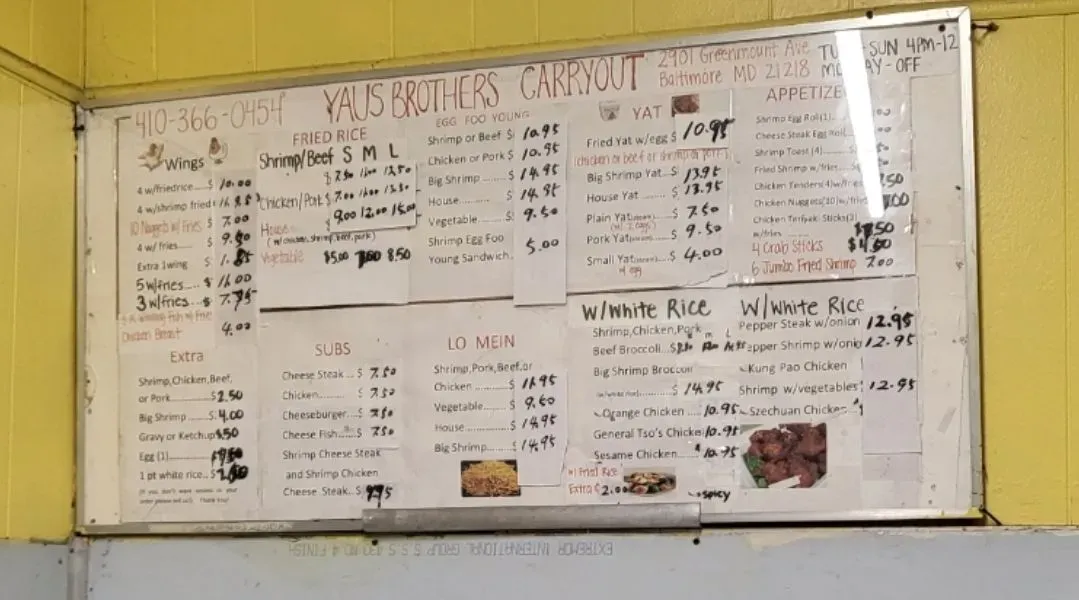 410-366-0454
YAUS BROTHERS CARRYOUT
2901 Greenmount Ave
Baltimore MD 21218
SUN 4PM-12
OFF
Wings
4 w/friedrice.... $ 10.00
4 w/shrimp fried
10 Nuggets w/ Fries $ 7.00
4 w/ fries..... $ 9.50
Extra 1wing $
5 w/fries.... $ 11.00
3 w/fries.. $ 7.75
Chicken Breast 4.00
Extra
Shrimp,Chicken,Beef,
or Pork........$2.50
Big Shrimp.....$4.00
Gravy or Ketchup $.50
Egg (1)
1 pt white rice.. $
(If you don't want onions in your
order please tell us). Thank you!
FRIED RICE
Shrimp/Beef S M L
$ 7.50 11.00 13.50
Chicken/Pork $ 7.00 11.00 13.50
House 9.00 12.00 15.00
(w/ chicken, shrimp, beef, pork)
Vegetable $5.00 7.00 8.50
SUBS
Cheese Steak... $ 7.50
Chicken........ $ 7.50
Cheeseburger.. $ 7.50
Cheese Fish... $ 7.50
Shrimp Cheese Steak
and Shrimp Chicken
Cheese Steak.. $ 9.95
EGG FOO YOUNG
Shrimp or Beef $ 10.95
Chicken or Pork $ 10.95
Big Shrimp ....... $ 14.95
House.......... $ 14.95
Vegetable....... $ 9.50
Shrimp Egg Foo
Young Sandwich. 5.00
LO MEIN
Shrimp,Pork,Beef,or
Chicken ......... $ 11.95
Vegetable........ $ 9.50
House............ $ 14.95
Big Shrimp........ $ 14.95
YAT
Fried Yat w/egg $ 10.95
(chicken or beef or shrimp or pork)
Big Shrimp Yat.. $ 13.95
House Yat....... $ 13.95
Plain Yat $ 7.50
(w/ 2 eggs)
Pork Yat $ 9.50
Small Yat $ 4.00
w/ egg
W/White Rice
Shrimp,Chicken,Pork
Beef Broccoli...$
Big Shrimp Broccoli
(w/white rice) $ 14.95
Orange Chicken .... 10.95
General Tso's Chicken 10.95
Sesame Chicken.... 10.95
w/ Fried Rice
Extra 2.00
spicy
APPETIZE
Shrimp Egg Roll(1)
Cheese Steak Egg Roll
Shrimp Toast (4)
Fried Shrimp w/fries
Chicken Tenders(4)w/fries
Chicken Nuggets(10)w/fries
Chicken Teriyaki Sticks(3)
w/fries
4 Crab Sticks
6 Jumbo Fried Shrimp 7.00
W/White Rice
Pepper Steak w/onion 12.95
Pepper Shrimp w/onion 12.95
Kung Pao Chicken
Shrimp w/vegetables 12.95
Szechuan Chicken
EXTREMOR INTERNATIONAL GROUP